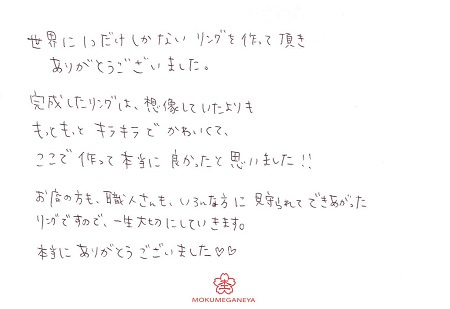 世界に1つだけしかない リングを作って頂き
ありがとうございました。
完成したリングは、想像していたよりも
もっともっと キラキラで かわいくて、
ここで 作って 本当に 良かったと 思いました!!
お店の方も、職人さんも、いろんな方に 見守られて できあがった
リングですので、一生大切にしていきます。
本当に ありがとう ございました♡♡
MOKUMEGANEYA